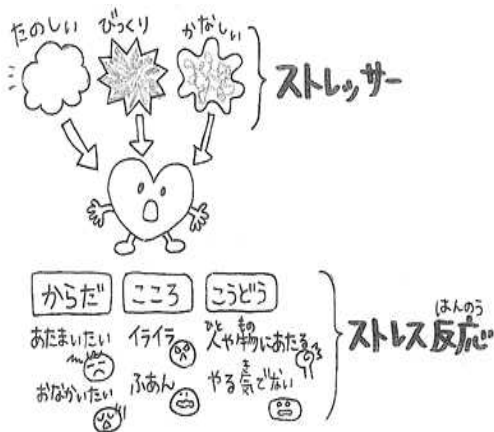 たのしい びっくり かなしい
ストレッサー
からだ こころ こうどう
あたまいたい イライラ 人や物にあたる
ひと もの
おなかいたい ふあん やる気でない
き
ストレス反応
はんのう